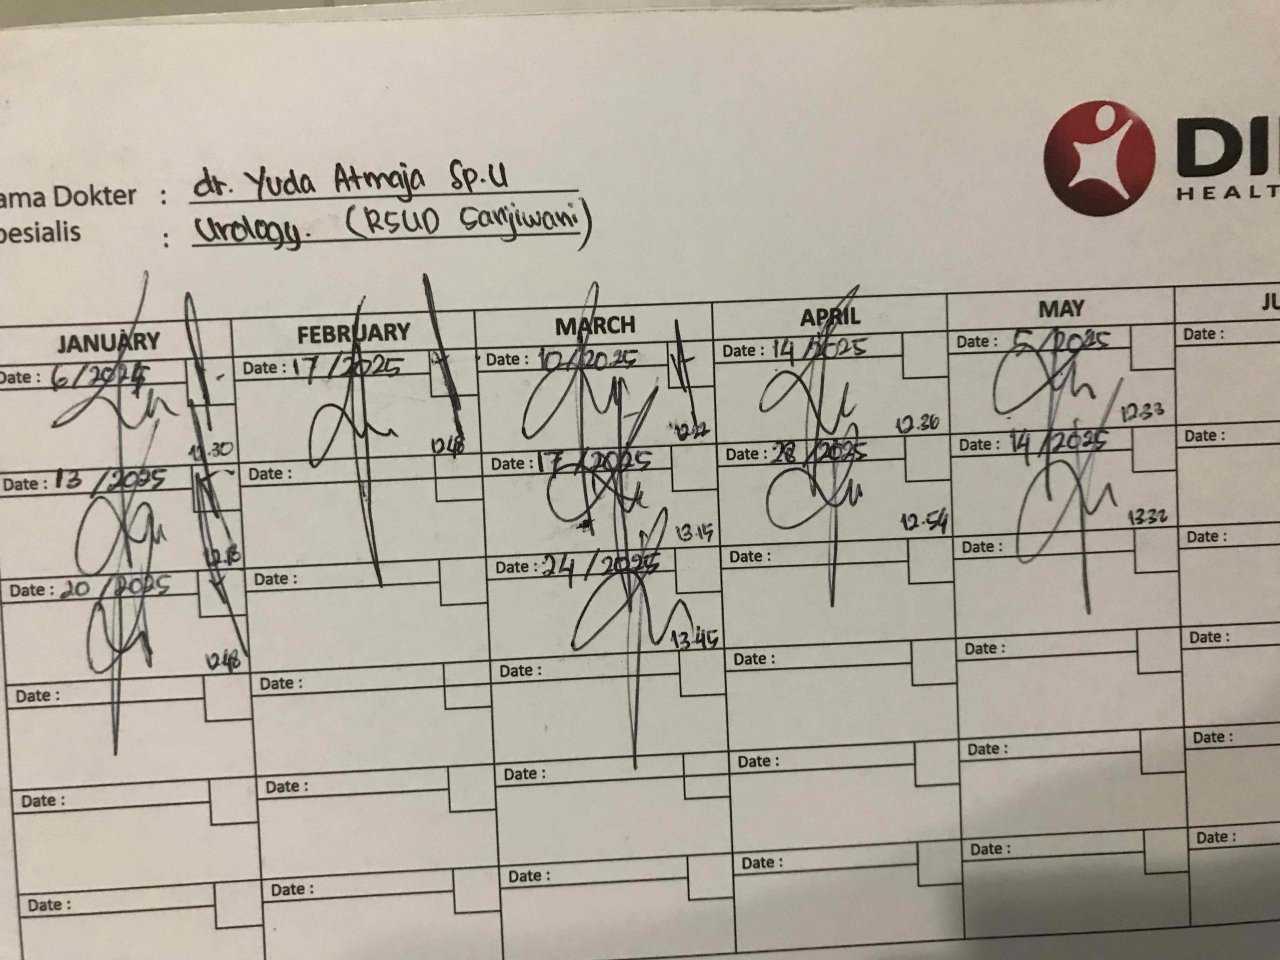 ama Dokter : dr. Yuda Atmaja Sp.U
pesialis : Urology. (RSUD Sanjiwani)
DI
HEALT
JANUARY FEBRUARY MARCH APRIL MAY JU
Date : 6/2025 Date : 17/2025 Date : 10/2025 Date : 14/2025 Date : 5/2025 Date :
12.30 1248 1222 12.36 12.33
Date : 13/2025 Date : Date : 17/2025 Date : 28/2025 Date : 14/2025 Date :
13.15 12.54 1332
Date : 20/2025 Date : Date : 24/2025 Date : Date : Date :
1248 13.45
Date : Date : Date : Date : Date : Date :
Date : Date : Date : Date : Date : Date :
Date : Date : Date : Date : Date : Date :